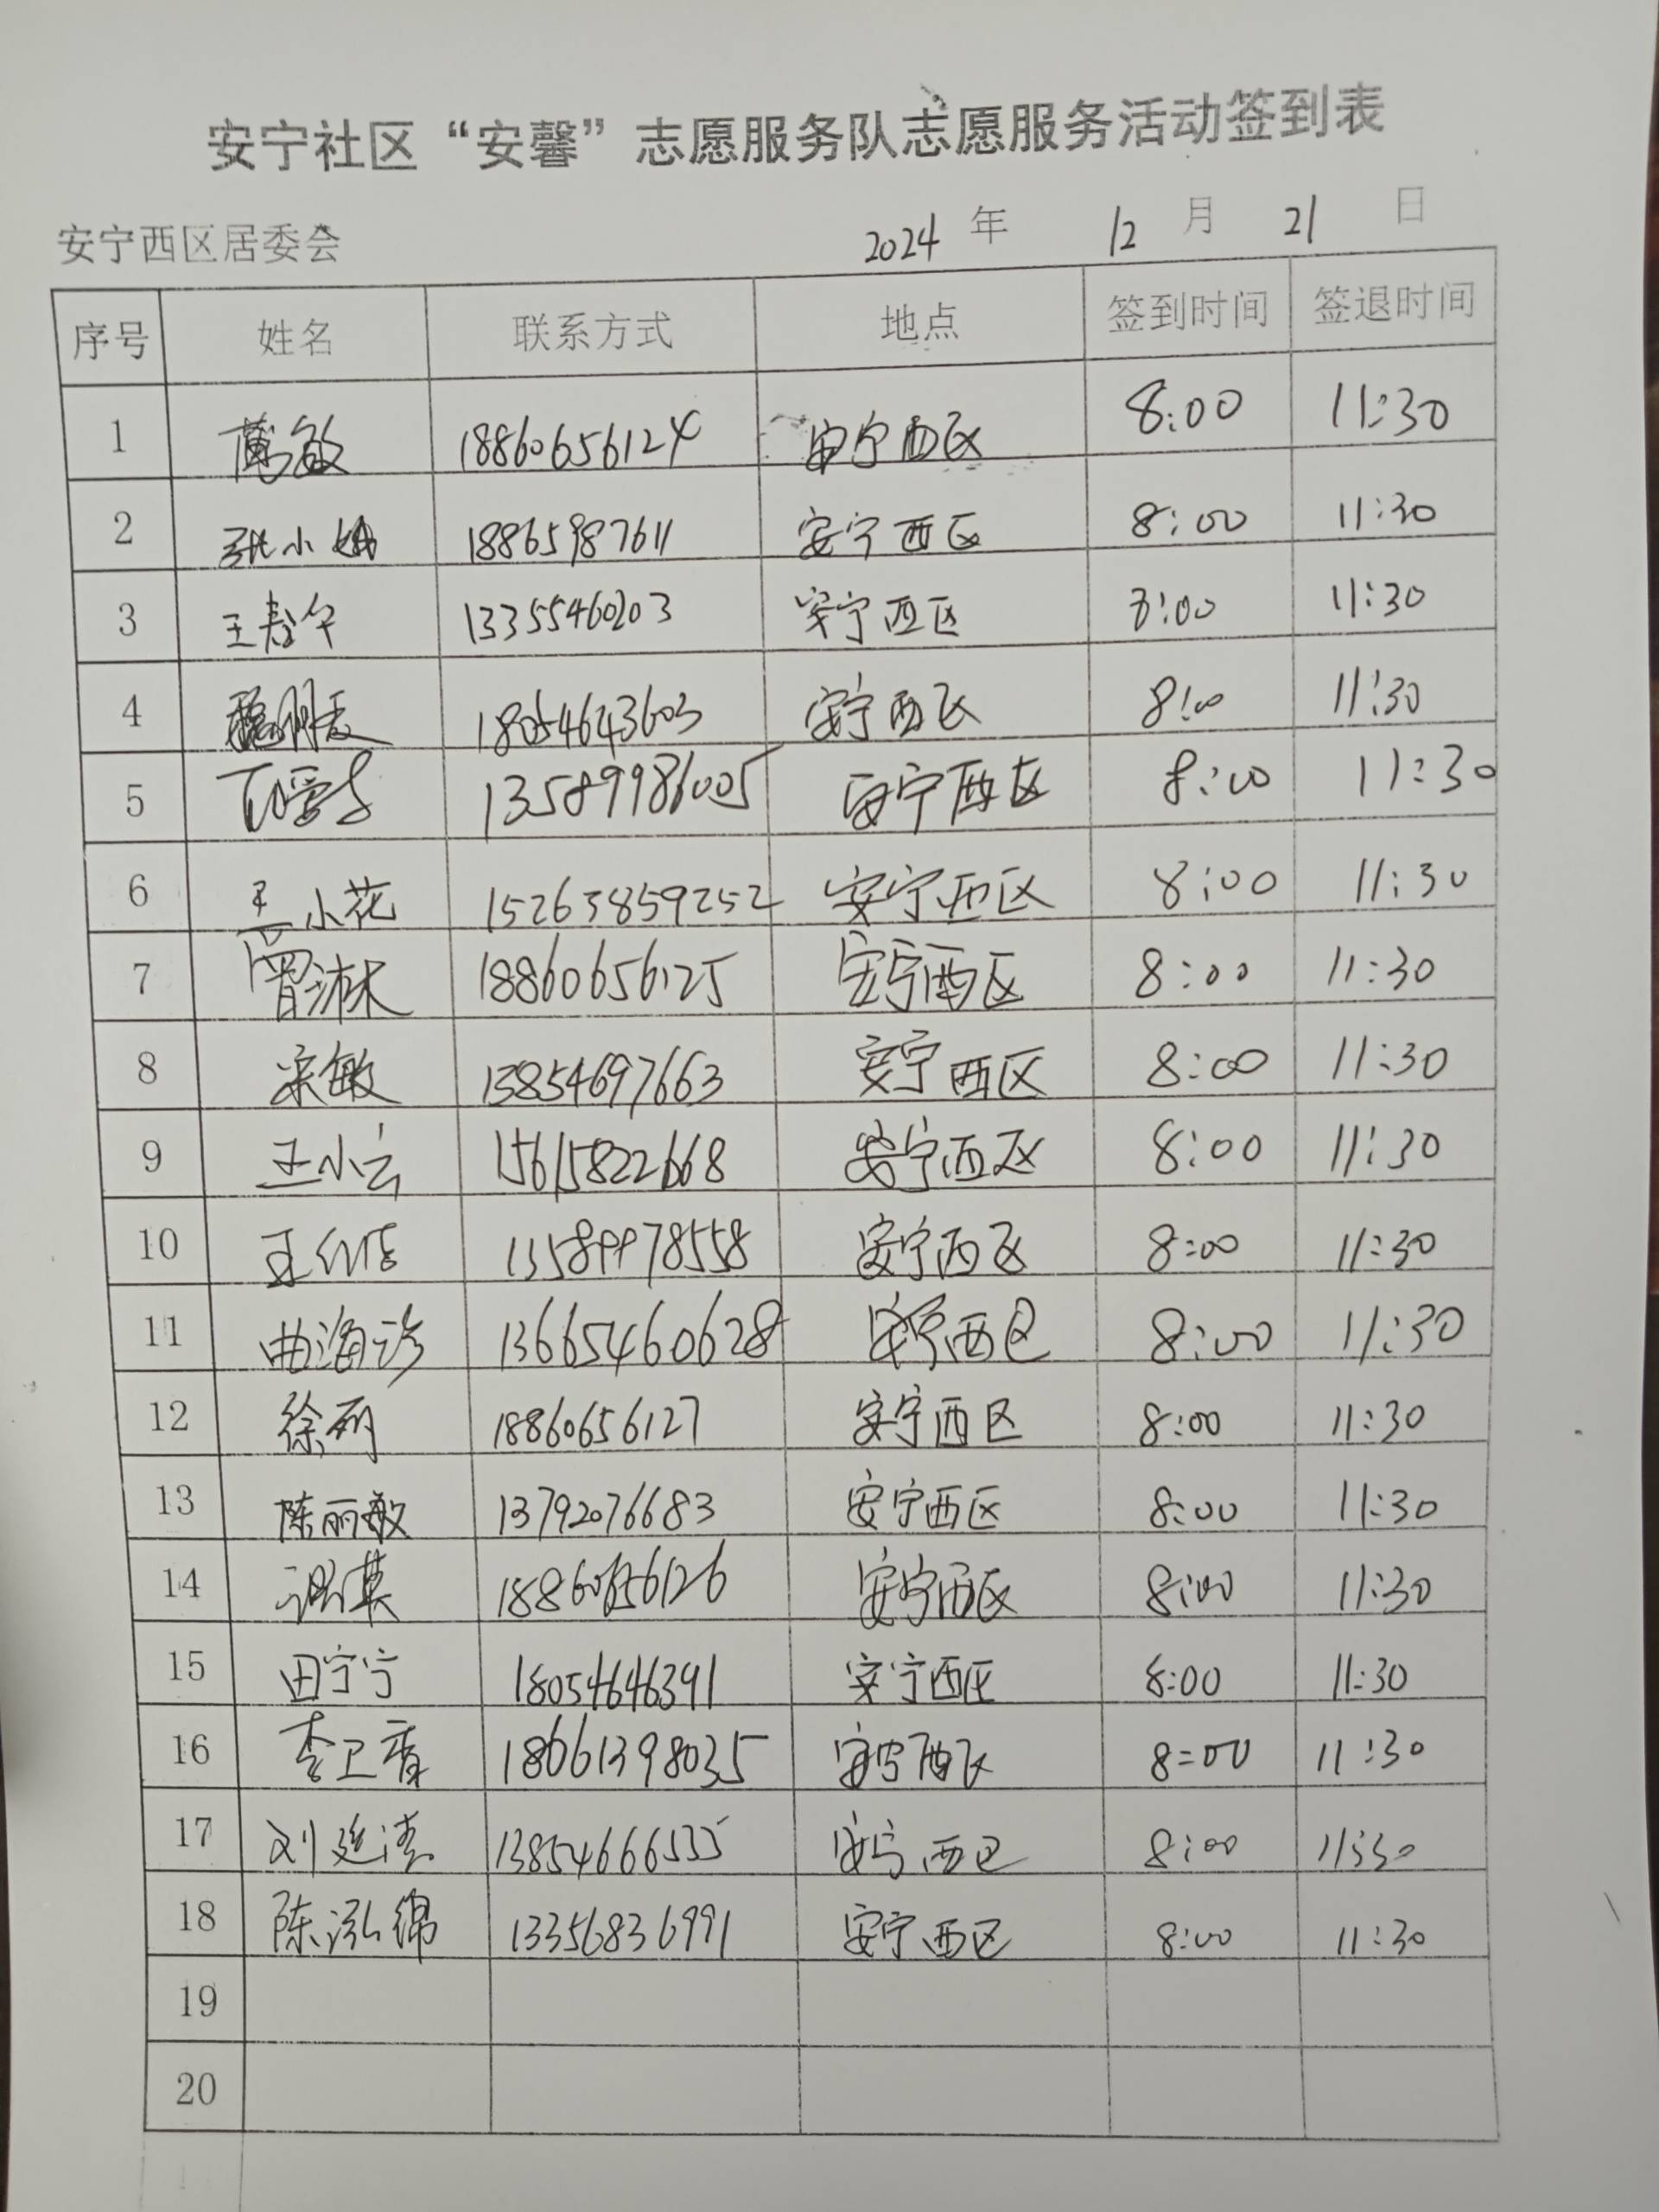 安宁社区“安馨”志愿服务队志愿服务活动签到表
安宁西区居委会 2024 年 12 月 21 日
序号 姓名 联系方式 地点 签到时间 签退时间
1 敏 18860656124 安宁西区 8:00 11:30
2 张小娟 18865987611 安宁西区 8:00 11:30
3 王春午 13355460203 安宁西区 8:00 11:30
4 18054643603 安宁西区 8:00 11:30
5 13589986005 安宁西区 8:00 11:30
6 王小花 15263859252 安宁西区 8:00 11:30
7 曾淋 18860656125 安宁西区 8:00 11:30
8 宋敏 13854697663 安宁西区 8:00 11:30
9 王小云 15615822668 安宁西区 8:00 11:30
10 王 13589978558 安宁西区 8:00 11:30
11 曲海珍 13665460628 安宁西区 8:00 11:30
12 徐丽 18860656127 安宁西区 8:00 11:30
13 陈丽敏 13792076683 安宁西区 8:00 11:30
14 温其 18860656126 安宁西区 8:00 11:30
15 田宁宁 18054646391 安宁西区 8:00 11:30
16 李卫香 18661398035 安宁西区 8:00 11:30
17 刘延清 13854666535 安宁西区 8:00 11:30
18 陈泓锦 13356836991 安宁西区 8:00 11:30
19
20